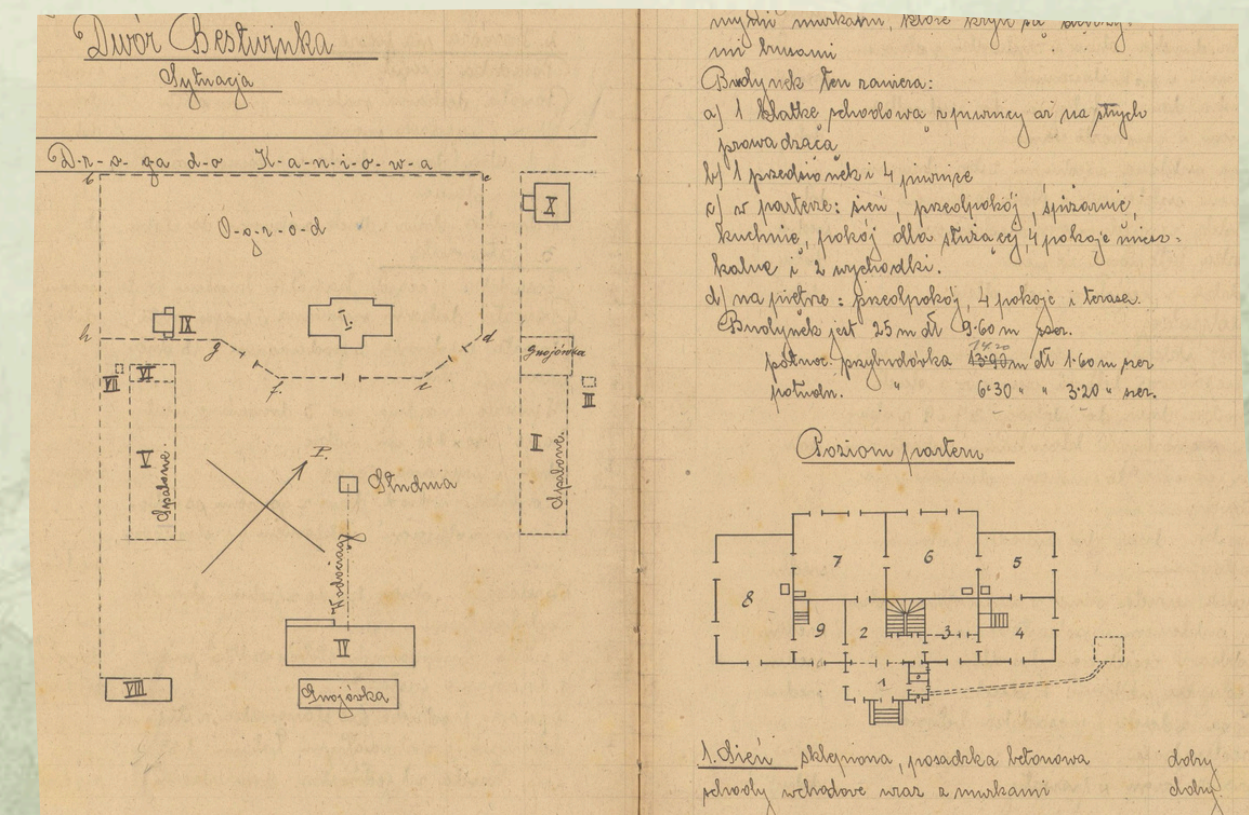 Dwór Bestwinka
Sytuacja
D-r-o-ga d-o K-a-n-i-o-w-a
b
c
X
O-g-r-ó-d
IX
I.
h
g
d
Gnojówka
VII
VI
f.
e
III
V
Spalone.
II
Spalone.
P.
Studnia
Wodociąg
IV
VIII
Gnojówka
murkami, które kryte są
mi
Budynek ten zawiera:
a) 1 klatkę schodową z piwnicy aż na strych
prowadzącą
b) 1 przedsionek i 4 piwnice
c) w parterze: sień, przedpokój, spiżarnię,
kuchnię, pokój dla służącej, 4 pokoje miesz-
kalne i 2 wychodki.
d) na piętrze: przedpokój, 4 pokoje i terasa.
Budynek jest 25 m dł 9·60 m szer.
14.20
północ. przybudówka 13·90 m dł 1·60 m szer
połudn. " 6·30 " " 3·20 " szer.
Poziom parteru
7
6
5
8
9
2
3
4
1
1. Sień sklepiona, posadzka betonowa dobry
schody wchodowe wraz z murkami dobry